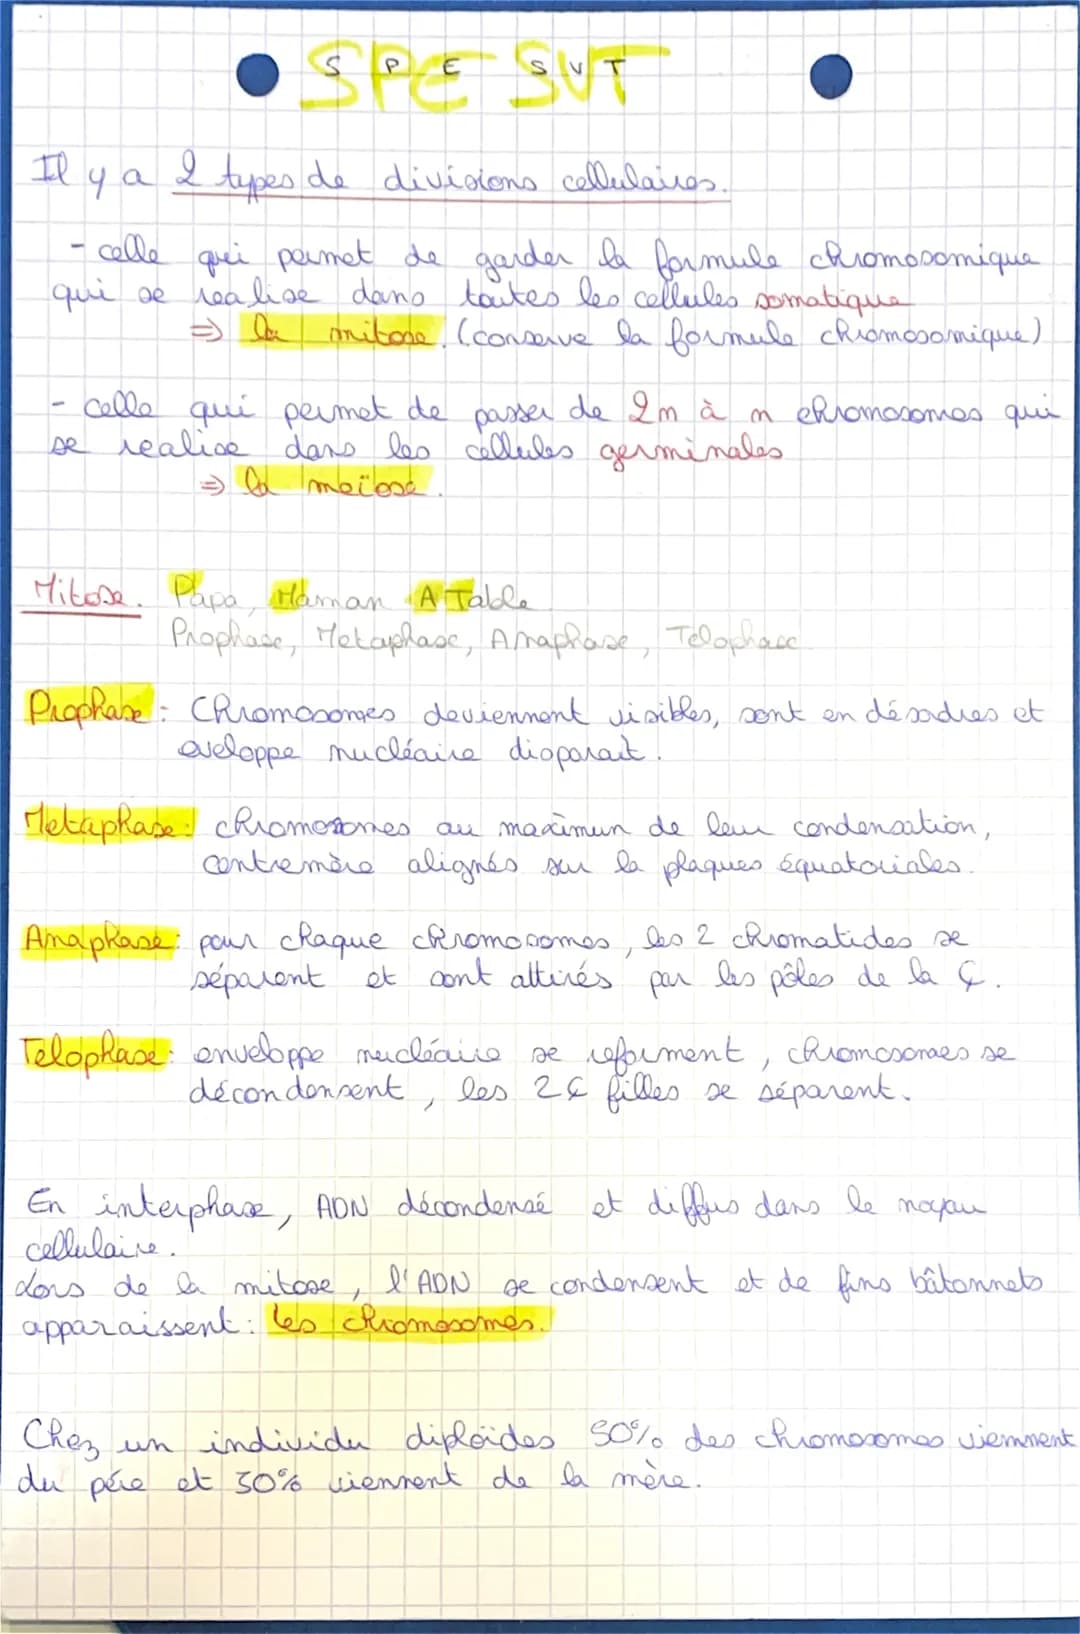 SPE SVT
S P E S V T
Il y a 2 types de divisions cellulaires.
- celle qui permet de garder la formule chromosomique
qui se realise dans toutes les cellules somatique
=> la mitose. (conserve la formule chromosomique)
- celle qui permet de passer de 2n à n chromosomes qui
se realise dans les cellules germinales
=> la meïose.
Mitose. Papa, Maman A Table
Prophase, Metaphase, Anaphase, Telophase
Prophase : Chromosomes deviennent visibles, sont en désodres et
eveloppe nucléaire disparait.
Metaphase : chromosomes au maximun de leur condensation,
centremère alignés sur la plaques équatoriales.
Anaphase : pour chaque chromosomes, les 2 chromatides se
séparent et sont attirés par les pôles de la ¢.
Telophase : enveloppe nucléaire se reforment, chromosomes se
décondensent, les 2 ¢ filles se séparent.
En interphase, ADN décondensé et diffus dans le noyau
cellulaire.
Lors de la mitose, l'ADN se condensent et de fins bâtonnets
apparaissent : les chromosomes.
Chez un individu diploïdes 50% des chromosomes viennent
du père et 50% viennent de la mère.